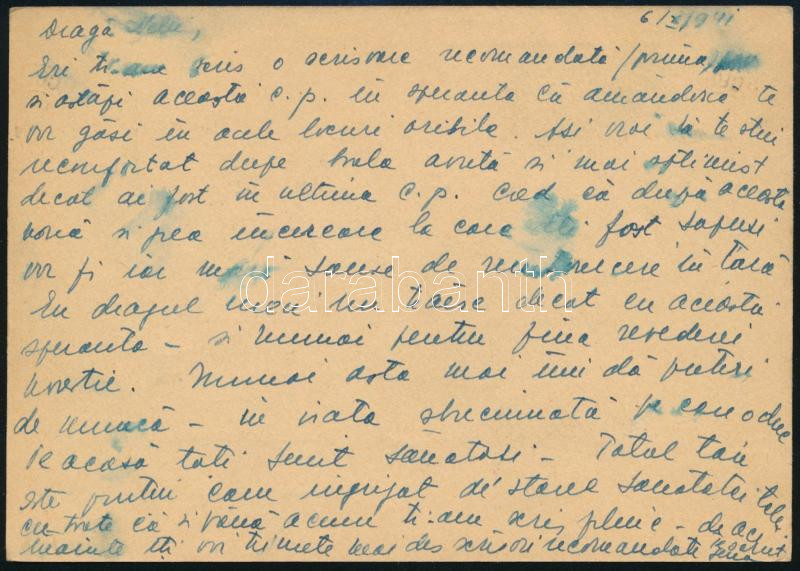 6/X/941
Dragă Nelu,
Eri ți-am scris o scrisoare recomandată (prima)
și astăzi aceasta c.p. în speranta că amândouă te
vor găsi în acele locuri oribile. Ași vrea să te știu
reconfortat dupe boala avută și mai optimist
decat ai fost in ultima c.p. Cred că după aceste
nouă și grea încercare la care ați fost supusi
vor fi iar mari sanse de reîntoarcere în țară
Eu dragul meu nu trăesc decat cu această
speranta – si numai pentru ziua revederii
noastre. Numai asta mai îmi dă puteri
de muncă – în viata sbuciumată pe care o duc
Pe acasă toti sunt sănătosi – Tatăl tău
este putin cam ingrijat de starea sanatatei tale
cu toate că si până acum ti-am scris zilnic – de aci
inainte îți voi trimete mai des scrisori recomandate
darabanth